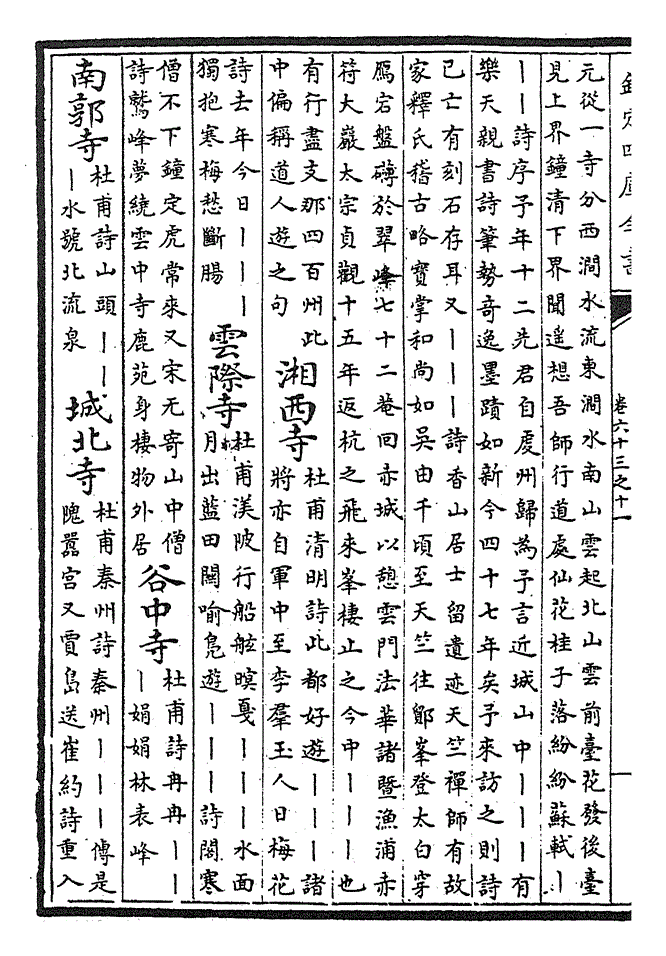 欽定四庫全書
卷六十三之十一
元從一寺分西澗水流東澗水南山雲起北山雲前臺花發後臺
見上界鐘清下界聞遥想吾師行道處仙花桂子落紛紛蘇軾丨
丨丨詩序予年十二先君自虔州歸為予言近城山中丨丨丨有
樂天親書詩筆勢奇逸墨蹟如新今四十七年矣予來訪之則詩
已亡有刻石存耳又丨丨丨詩香山居士留遺迹天竺禪師有故
家釋氏稽古略寶掌和尚如吳由千頃至天竺往鄮峯登太白穿
鴈宕盤礴於翠峰七十二菴回赤城以憩雲門法華諸暨漁浦赤
符大巖太宗貞觀十五年返杭之飛來峯棲止之今中丨丨丨也
有行盡支那四百州此
中偏稱道人遊之句
湘西寺
杜甫清明詩此都好遊丨丨丨諸
將亦自軍中至李羣玉人日梅花
詩去年今日丨丨丨
獨抱寒梅愁斷腸
雲際寺
杜甫渼陂行船舷暝戛丨丨丨水面
月出藍田關喻鳧遊丨丨丨詩閣寒
僧不下鐘定虎常來又宋无寄山中僧
詩鷲峰夢繞雲中寺鹿苑身棲物外居
谷中寺
杜甫詩冉冉丨丨
丨娟娟林表峰
南郭寺
杜甫詩山頭丨丨
丨水號北流泉
城北寺
杜甫秦州詩秦州丨丨丨傳是
隗囂宮又賈島送崔約詩重入